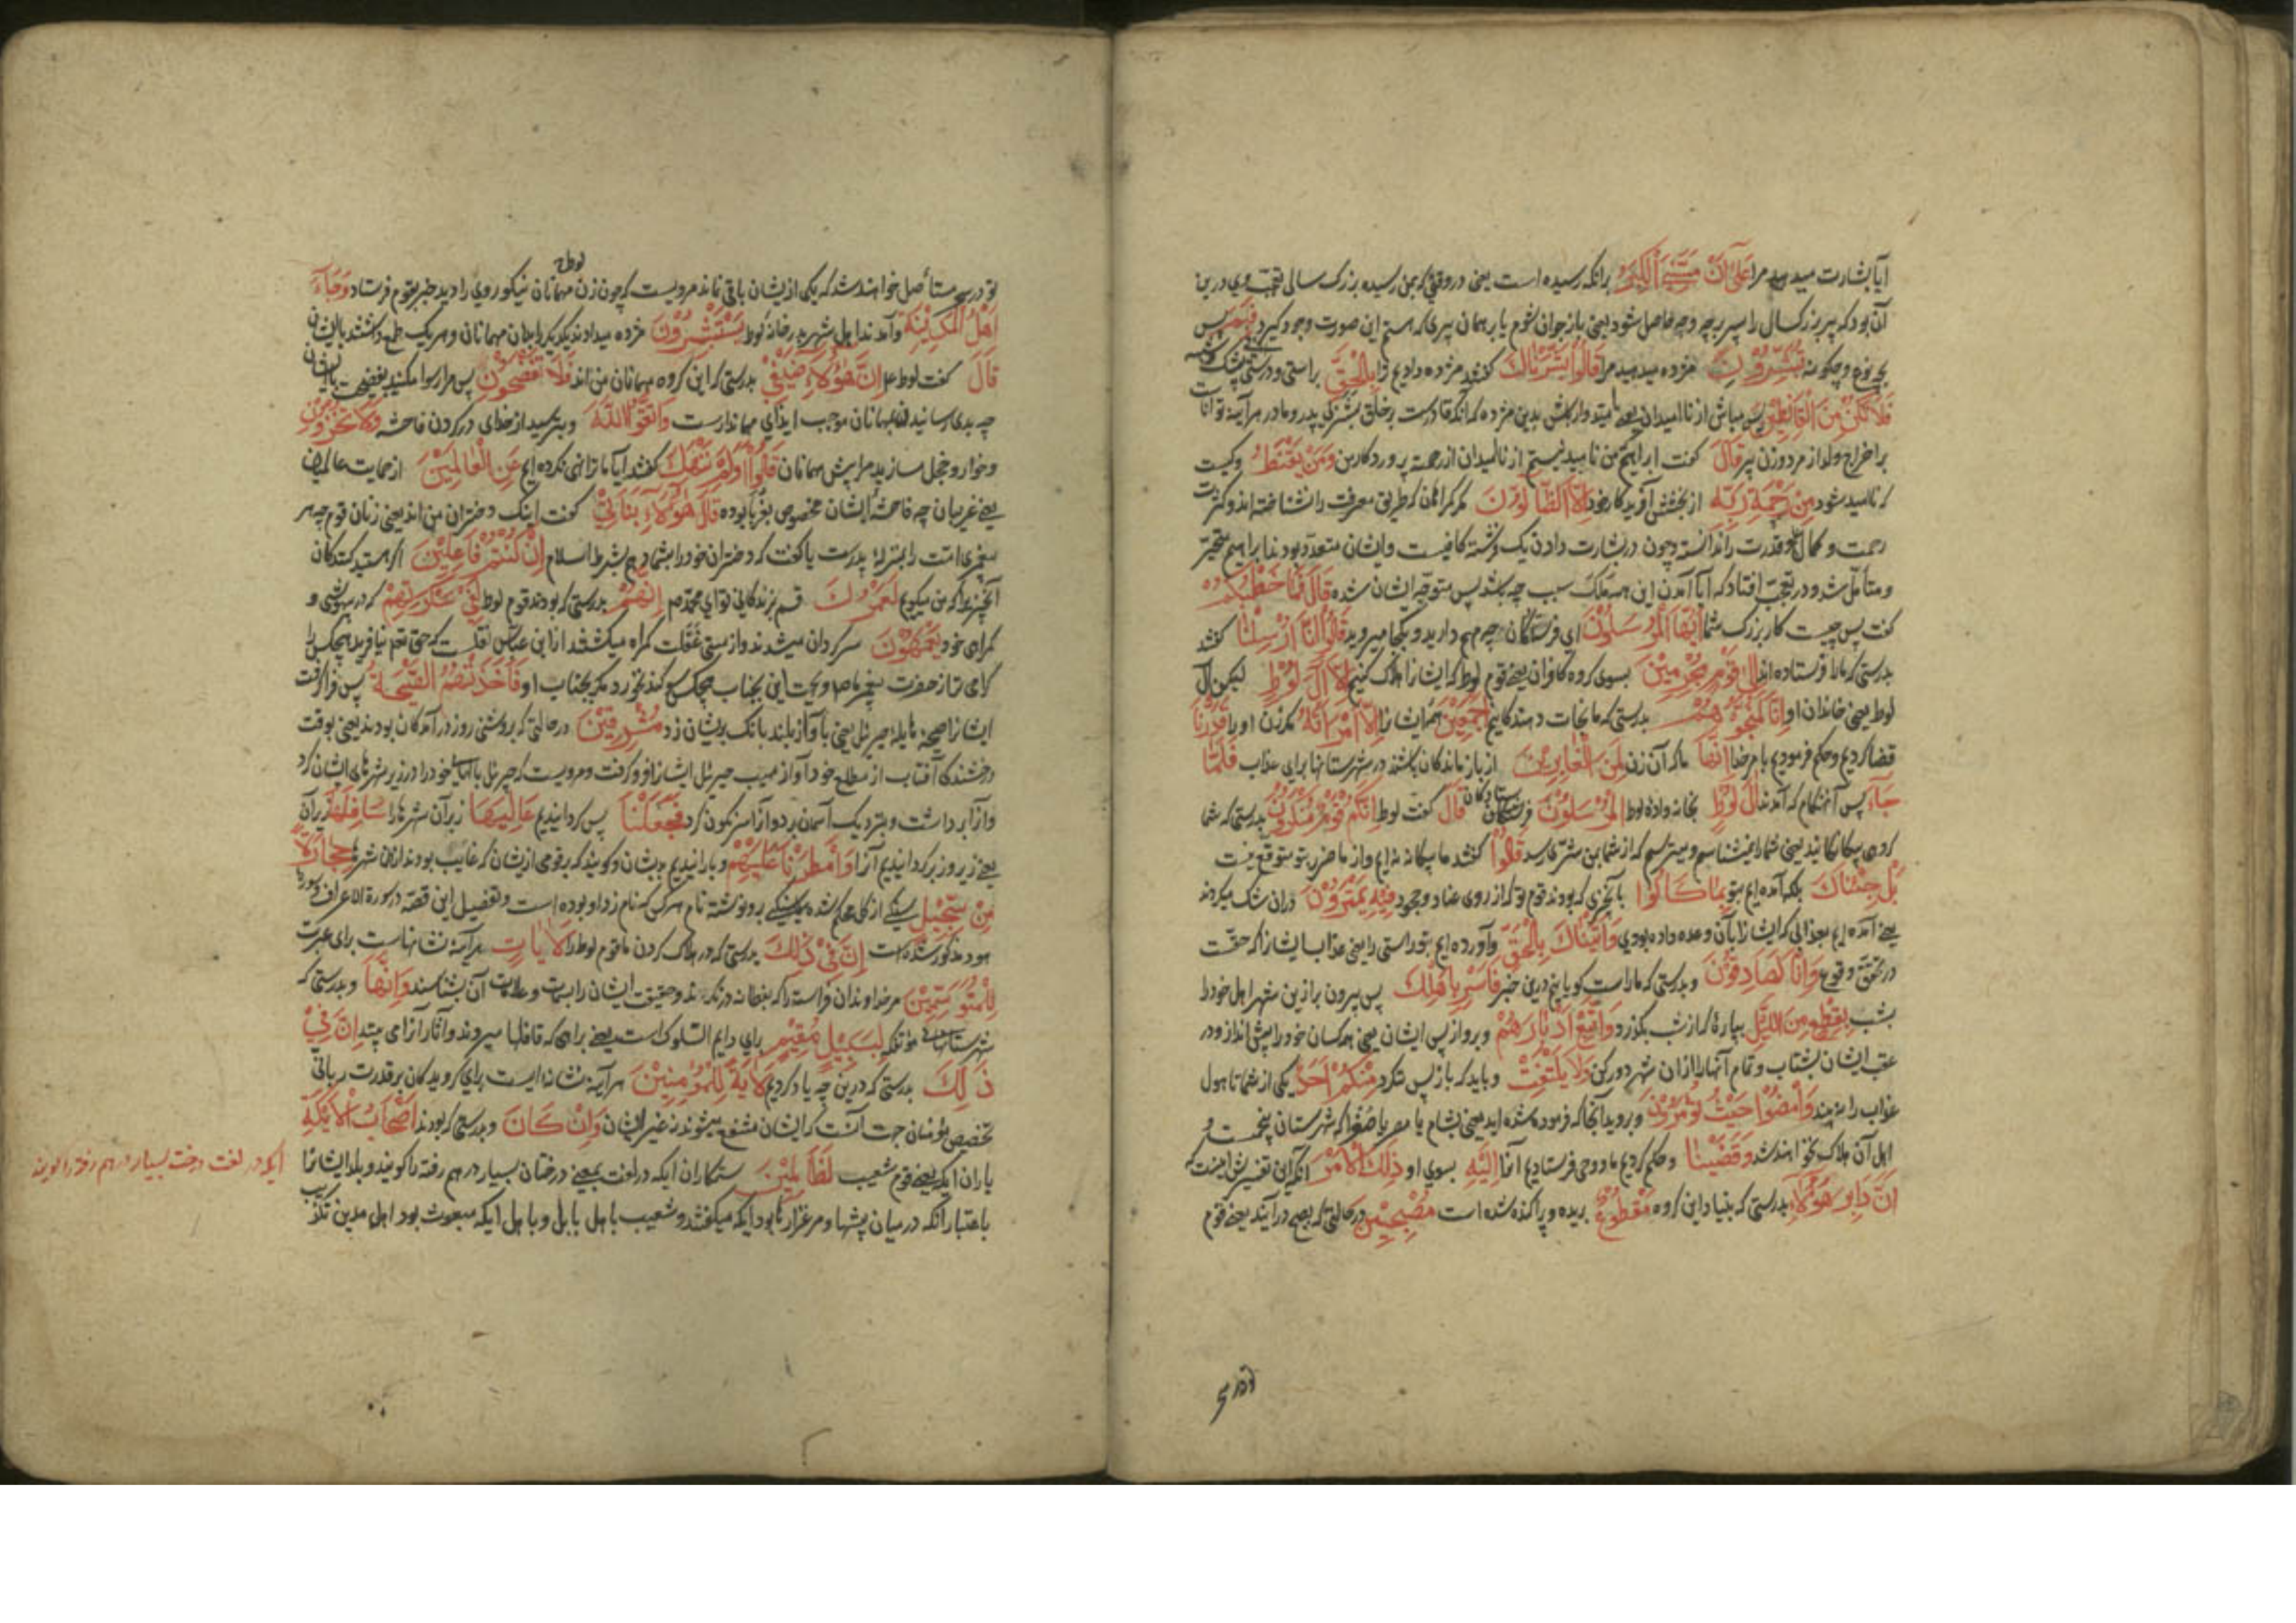 آیا بشارت میدهید مرا عَلَىٰ أَنْ مَسَّنِيَ الْكِبَرُ برانکه رسیده است یعنی در وقتی که بمن رسیده بزرگ سالی تعجب وی درین
آن بود که پیر بزرگ سال را پسر بچه وجه حاصل شود یعنی باز جوان شوم یا بر همان پیری که هستم این صورت وجود گیرد فَبِمَ پس
بچه نوع و چگونه تُبَشِّرُونَ مژده میدهید مرا قَالُوا بَشَّرْنَاكَ گفتند مژده دادیم ترا بِالْحَقِّ براستی و درستی
فَلَا تَكُنْ مِنَ الْقَانِطِينَ پس مباش از ناامیدان بدین مژده که آنکه قادرست بر خلق بشر بی پدر و مادر هر آینه تواناست
بر اخراج ولد از مرد و زن پیر قَالَ گفت ابراهیم من ناامید نیستم از ناامیدان از رحمت پروردگار من وَمَنْ يَقْنَطُ و کیست
که ناامید شود مِنْ رَحْمَةِ رَبِّهِ از بخشش آفریدگار خود إِلَّا الضَّالُّونَ مگر گمراهان که طریق معرفت را نشناخته اند و کثرت
رحمت و کمال قدرت را ندانسته و چون در بشارت دادن یک فرشته کافیست و ایشان متعدد بودند ابراهیم متحیر
و متأمل شد و در تعجب افتاد که آیا آمدن این همه ملک سبب چه باشد پس متوجه ایشان شده قَالَ فَمَا خَطْبُكُمْ
گفت پس چیست کار بزرگ شما أَيُّهَا الْمُرْسَلُونَ ای فرستادگان چه مهم دارید و بکجا میروید قَالُوا إِنَّا أُرْسِلْنَا گفتند
بدرستی که ما فرستاده اند إِلَىٰ قَوْمٍ مُجْرِمِينَ بسوی گروه کافران یعنی قوم لوط که ایشانرا هلاک کنیم إِلَّا آلَ لُوطٍ لیکن آل
لوط یعنی خاندان او إِنَّا لَمُنَجُّوهُمْ بدرستی که ما نجات دهندگانیم أَجْمَعِينَ همه ایشانرا إِلَّا امْرَأَتَهُ مگر زن او را قَدَّرْنَا
قضا کردیم و حکم فرمودیم بامر خدا إِنَّهَا که آن زن لَمِنَ الْغَابِرِينَ از باز ماندگان باشد در شهرستانها برای عذاب فَلَمَّا
جَاءَ پس آن هنگام که آمدند آلَ لُوطٍ بخانواده لوط الْمُرْسَلُونَ فرستادگان قَالَ گفت لوط إِنَّكُمْ قَوْمٌ مُنْكَرُونَ بدرستی که شما
گروهی بیگانگانید یعنی شما را نمیشناسم و میترسم که از شما بمن شری رسد قَالُوا گفتند ما بیگانه نه ایم و از ما ضرر بتو متوقع نیست
بَلْ جِئْنَاكَ بلکه آمده ایم بتو بِمَا كَانُوا بانچیزی که بودند قوم تو که از روی عناد و جحود فِيهِ يَمْتَرُونَ دران شک میکردند
یعنی آمده ایم بعذابی که ایشانرا بآن وعده داده بودی وَأَتَيْنَاكَ بِالْحَقِّ و آورده ایم بتو راستی را یعنی عذاب ایشانرا که حقست
وقوع وَإِنَّا لَصَادِقُونَ و بدرستی که ما راست گویانیم درین خبر فَأَسْرِ بِأَهْلِكَ پس بیرون بر ازین شهر اهل خود را
بشب بِقِطْعٍ مِنَ اللَّيْلِ بپاره که از شب بگذرد وَاتَّبِعْ أَدْبَارَهُمْ و برو از پس ایشان یعنی همه کسان خود را پیش انداز و در
عقب ایشان بشتاب و تمام آنها را ازان شهر دور کن وَلَا يَلْتَفِتْ و باید که باز پس ننگرد مِنْكُمْ أَحَدٌ یکی از شما تا هول
عذاب را نه بیند وَامْضُوا حَيْثُ تُؤْمَرُونَ و بروید آنجا که فرموده شده اید یعنی بشام یا مصر یا صغر که شهرستان پنجمست و
اهل آن هلاک نخواهند شد وَقَضَيْنَا و حکم کردیم ما و وحی فرستادیم إِلَيْهِ بسوی او ذَٰلِكَ الْأَمْرَ تفسیرش اینست که
أَنَّ دَابِرَ هَٰؤُلَاءِ بدرستی که بنیاد این گروه مَقْطُوعٌ بریده و پراکنده شده است مُصْبِحِينَ در حالتی که بصبح درآیند یعنی قوم
تو در صبح مستأصل خواهند شد که یکی از ایشان باقی نماند مرویست که چون زن لوط مهمانان نیکو روی را دید خبر بقوم فرستاد وَجَاءَ
أَهْلُ الْمَدِينَةِ و آمدند اهل شهر بدر خانه لوط يَسْتَبْشِرُونَ مژده میدادند یکدیگر را بدان مهمانان و هر یک طمع داشتند بایشان
قَالَ گفت لوط إِنَّ هَٰؤُلَاءِ ضَيْفِي بدرستی که این گروه مهمانان من اند فَلَا تَفْضَحُونِ پس مرا رسوا مکنید بفضیحت ایشان
چه بدی رسانیدن بمهمانان موجب ایذای مهماندارست وَاتَّقُوا اللَّهَ و بترسید از خدای در کردن فاحشه وَلَا تُخْزُونِ
و خوار و خجل مسازید مرا پیش مهمانان قَالُوا أَوَلَمْ نَنْهَكَ گفتند آیا ما ترا نهی نکرده ایم عَنِ الْعَالَمِينَ از حمایت عالمیان
یعنی غریبان چه فاحشه ایشان مخصوص بغربا بوده قَالَ هَٰؤُلَاءِ بَنَاتِي گفت اینک دختران من اند یعنی زنان قوم چه هر
پیغمبری امت را بمنزله پدرست یا گفت که دختران خود را بشما دهم بشرط اسلام إِنْ كُنْتُمْ فَاعِلِينَ اگر هستید کنندگان
آنچیز را که من میگویم لَعَمْرُكَ قسم بزندگانی تو ای محمد إِنَّهُمْ بدرستی که بودند قوم لوط لَفِي سَكْرَتِهِمْ که در بیهوشی و
گمراهی خود يَعْمَهُونَ سرگردان میشدند و از مستی غفلت گمراه میگشتند از ابن عباس نقلست که حق تعالی نیافرید هیچکس را
گرامی تر از حضرت پیغمبر ما و بحیات هیچکس سوگند نخورد مگر بحیات او فَأَخَذَتْهُمُ الصَّيْحَةُ پس فرا گرفت
ایشانرا صیحه هایله جبرئیل یعنی بآواز بلند بانک بریشان زد مُشْرِقِينَ در حالتی که بروشنی روز درآمدگان بودند یعنی بوقت
درخشندگی آفتاب از مطلع خود آواز مهیب جبرئیل ایشانرا فرو گرفت و مرویست که جبرئیل خود را در زیر شهرهای ایشان کرد
و از جا برداشت و نزدیک آسمان برد و از آنجا سرنگون کرد فَجَعَلْنَا پس گردانیدیم عَالِيَهَا زبر آن شهرها را سَافِلَهَا زیر آن
یعنی زیر و زبر گردانیدیم آنرا وَأَمْطَرْنَا عَلَيْهِمْ و بارانیدیم بریشان و گویند که بر قومی ازیشان که غایب بودند ازان شهرها حِجَارَةً
مِنْ سِجِّيلٍ سنگی از گل محکم شده که هر سنگی برو نوشته نام هر کس که نامزد او بوده است و تفصیل این قصه در سورة الاعراف و سوره
هود مذکور شده است إِنَّ فِي ذَٰلِكَ بدرستی که در هلاک کردن ما قوم لوط را لَآيَاتٍ هر آینه نشانهاست برای عبرت
لِلْمُتَوَسِّمِينَ مر خداوندان فراست را که بفطانت درنگرند و حقیقت ایشان را بسمات و علامات آن بشناسند وَإِنَّهَا و بدرستی که
شهرستانهای مؤتفکه لَبِسَبِيلٍ مُقِيمٍ براهی دایم السلوک است یعنی براهی که قافلها میروند و آثار آنرا می بینند إِنَّ فِي
ذَٰلِكَ بدرستی که درین چه یاد کردیم لَآيَةً لِلْمُؤْمِنِينَ هر آینه نشانه ایست برای گرویدگان بر قدرت ربانی
تخصیص مؤمنان جهت آنست که ایشان منتفع میشوند نه غیر ایشان وَإِنْ كَانَ و بدرستی که بودند أَصْحَابُ الْأَيْكَةِ
یاران ایکه یعنی قوم شعیب لَظَالِمِينَ ستمکاران ایکه در لغت بمعنی درختان بسیار در هم رفته را گویند و بلد ایشانرا
باعتبار آنکه در میان بیشها و مرغزارها بود ایکه میگفتند و شعیب باهل بابل و باهل ایکه مبعوث بود اهل مدین تکذیب
ایکه در لغت درخت بسیار در هم رفته را گویند